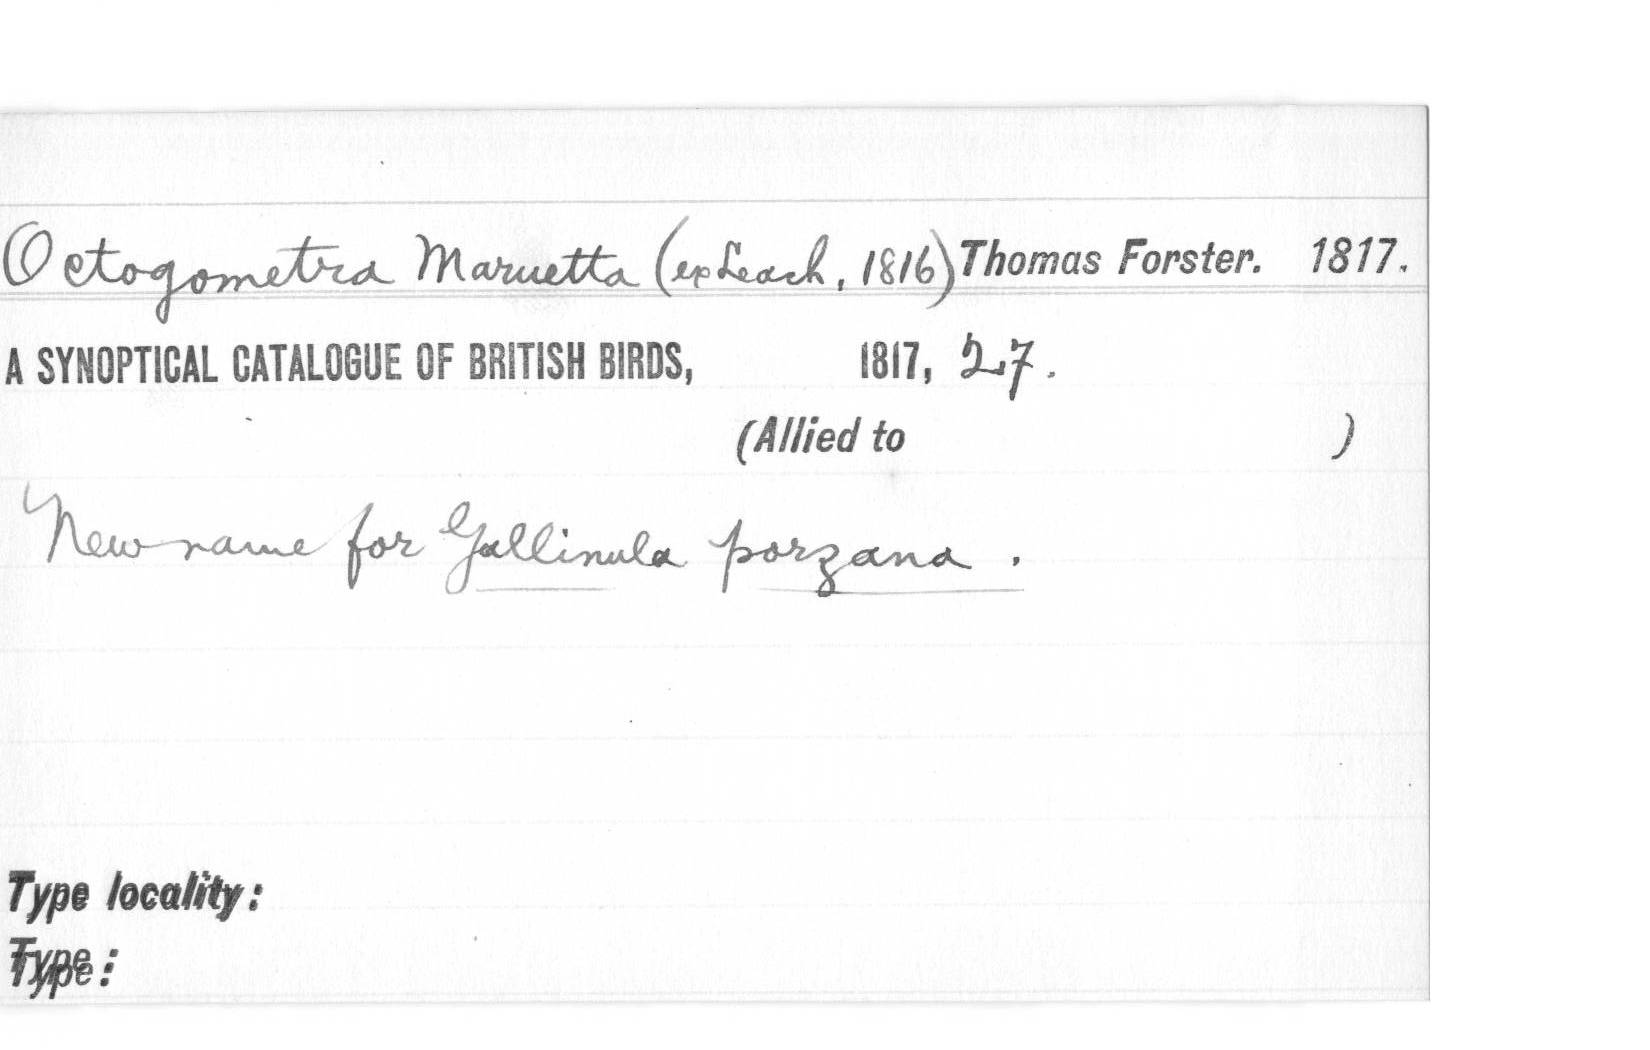 Octogometra Maruetta (ex Leach, 1816) Thomas Forster. 1817.
A SYNOPTICAL CATALOGUE OF BRITISH BIRDS, 1817, 27.
(Allied to )
New name for Gallinula porzana.
Type locality:
Type: